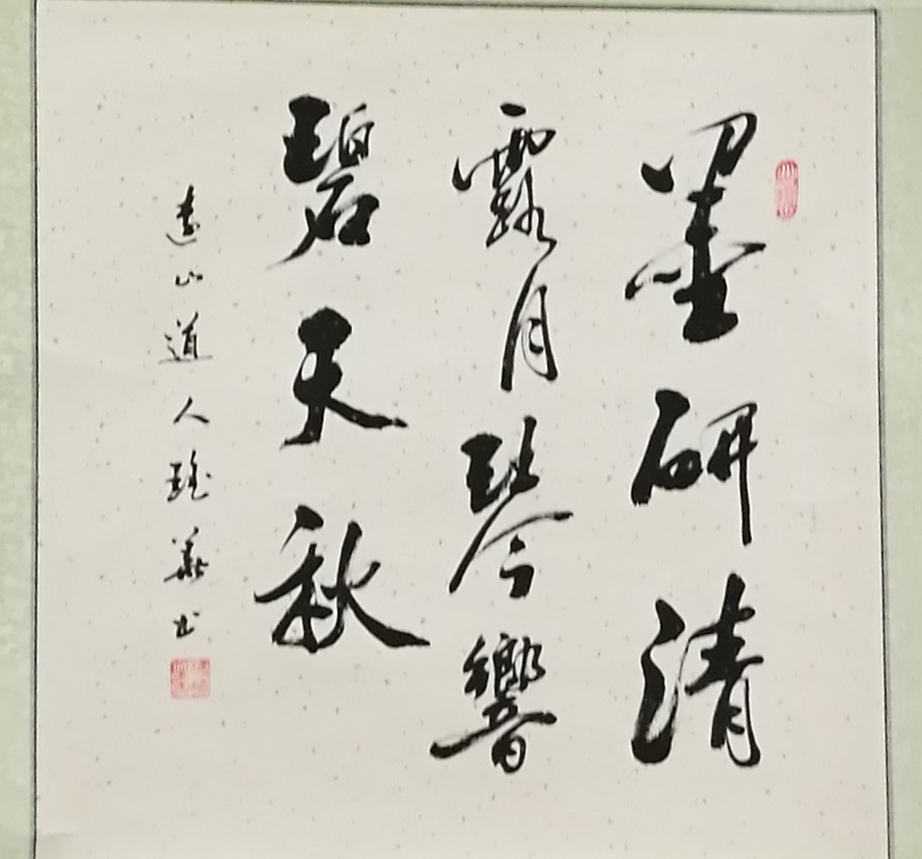 墨研清
露月琴響
碧天秋
山道人
書